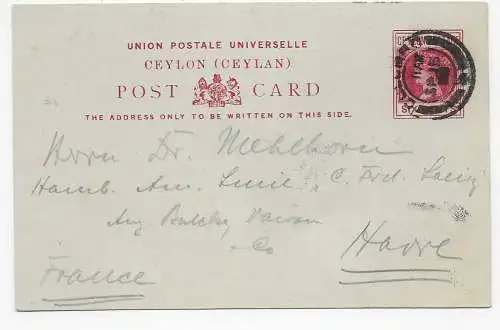 UNION POSTALE UNIVERSELLE
CEYLON (CEYLAN)
POST CARD
THE ADDRESS ONLY TO BE WRITTEN ON THIS SIDE.
Herrn Dr. Mehlhorn
Hamb. Am. Linie, C. Ferd.
Aug.
Co Havre
France